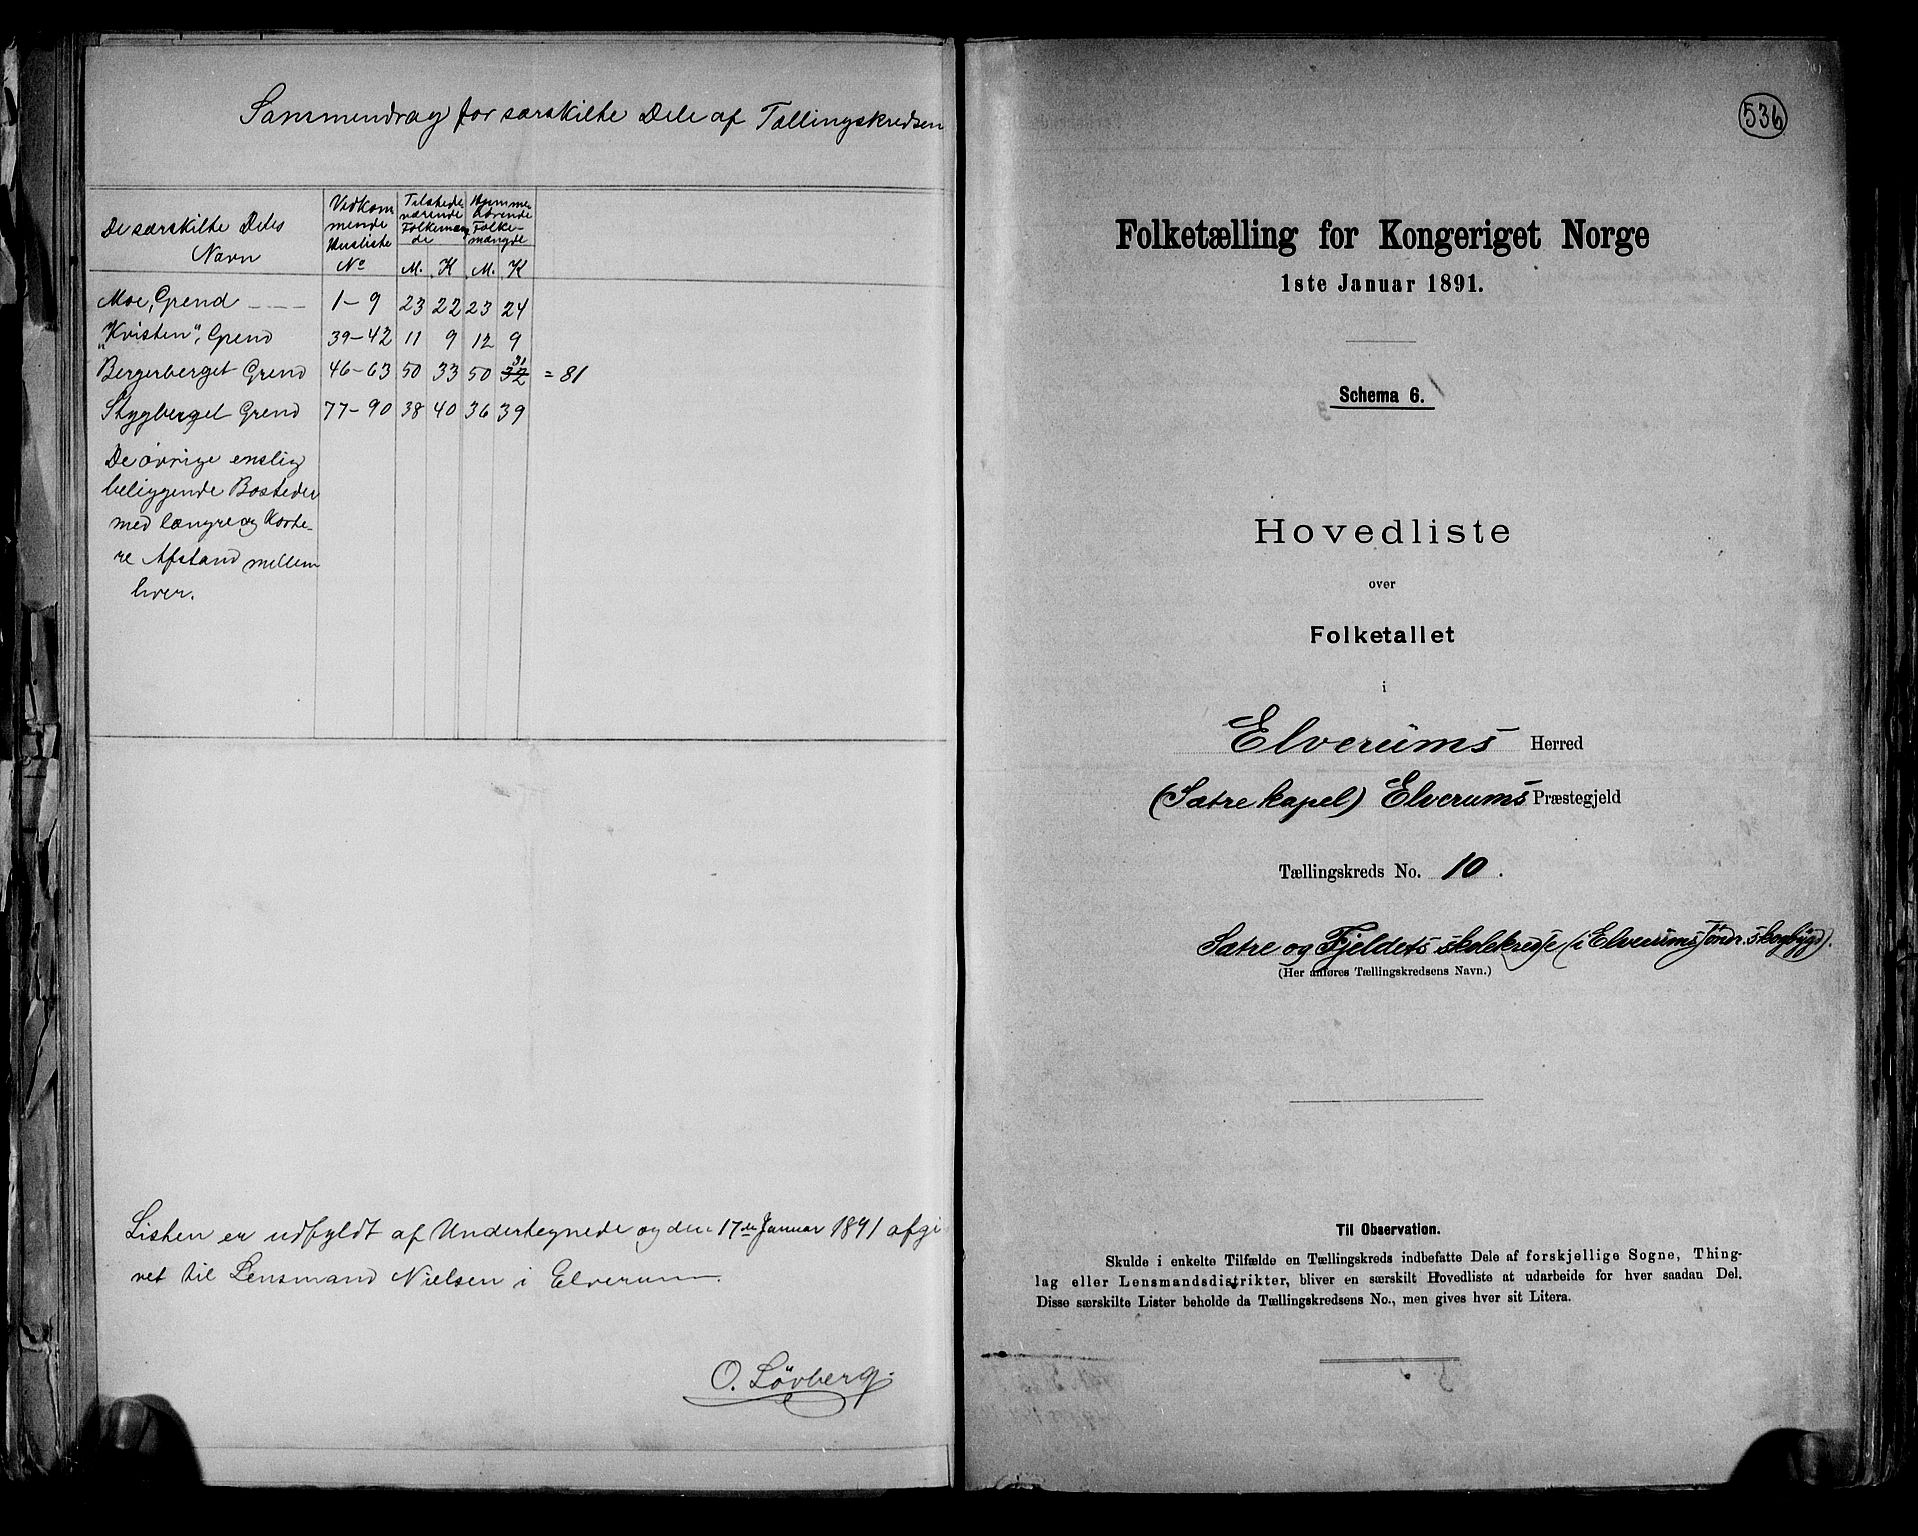 Sammendrag for særskilte Dele af Tællingskredsen
De særskilte Deles Navn
Vedkommende Husliste No
Tilstedeværende Folkemængde
Hjemmehørende Folkemængde
M. K M. K
Moe, Grend 1-9 23 22 23 24
"Kvisten", Grend 39-42 11 9 12 9
Bergerberget Grend 46-63 50 33 50 32 31 = 81
Stygberget Grend 77-90 38 40 36 39
De øvrige enslig
beliggende Bosteder
med længre og korte-
re Afstand mellem
hver.
Listen er udfyldt af Undertegnede og den 17de Januar 1891 afgi
vet til Lensmand Nielsen i Elverum.
O. Lövberg.
536
Folketælling for Kongeriget Norge
1ste Januar 1891.
Schema 6.
Hovedliste
over
Folketallet
i
Elverums Herred
(Sætre kapel) Elverums Præstegjeld
Tællingskreds No. 10.
Sætre og Fjeldets skolekredse (i Elverums söndr. skogbygd).
(Her anføres Tællingskredsens Navn.)
Til Observation.
Skulde i enkelte Tilfælde en Tællingskreds indbefatte Dele af forskjellige Sogne, Thing-
lag eller Lensmandsdistrikter, bliver en særskilt Hovedliste at udarbeide for hver saadan Del.
Disse særskilte Lister beholde da Tællingskredsens No., men gives hver sit Litera.